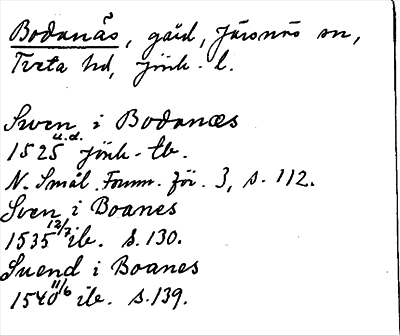 Bodanäs, gård, Järsnäs sn,
Tveta hd, Jönk. l.
Swen i Bodanæs
1525 u.d. Jönk. tb.
N. Smål. Fornm. för. 3, s. 112.
Sven i Boanes
1535 12/7 ib. S. 130.
Suend i Boanes
1540 11/6 ib. s. 139.